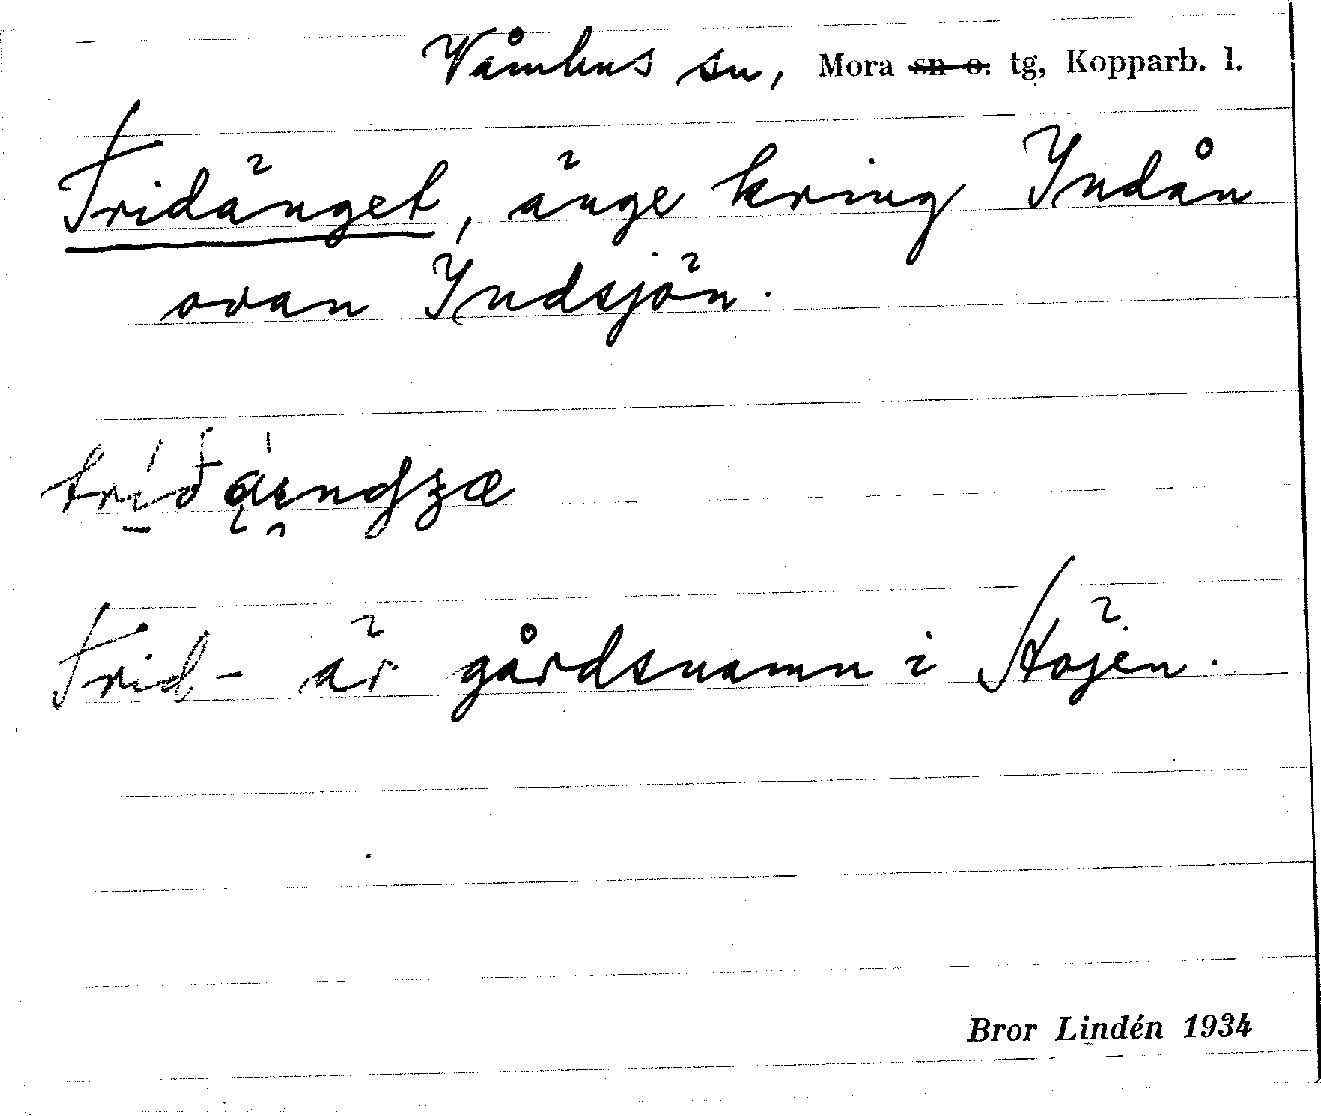 Våmhus sn, Mora ~~sn o.~~ tg, Kopparb. l.
Tridänget, änge kring Indån
ovan Indsjön.
Trid- är gårdsnamn i Höjen.
Bror Lindén 1934